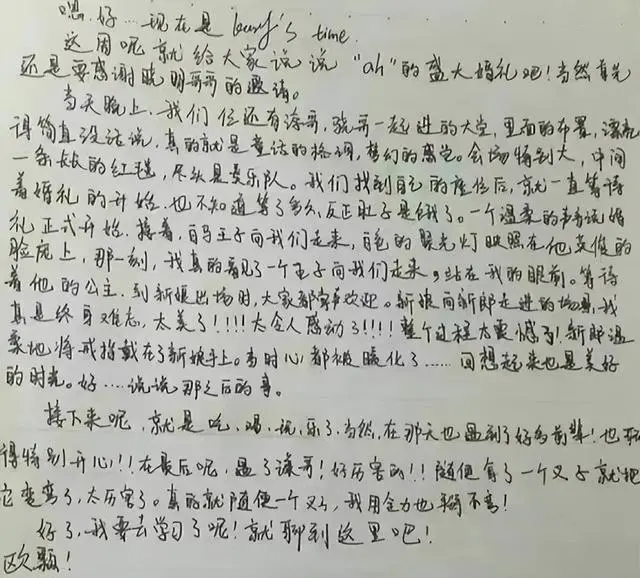 嗯,好…现在是 burf's time.
这周呢就给大家说说 "ah"的盛大婚礼吧!当然首先
还是要感谢晓明哥哥的邀请。
当天晚上,我们伍还有涛哥,骁哥一起进的大堂,里面的布置,漂亮
得简直没话说,真的就是童话的格调,梦幻的感觉。会场特别大,中间
一条长长的红毯,尽头是奏乐队。我们找到自己的座位后,就一直等待
着婚礼的开始.也不知道等了多久,反正肚子是饿了。一个温柔的声音说婚
礼正式开始.接着,白马王子向我们走来,白色的聚光灯映照在他英俊的
脸庞上,那一刻,我真的看见了一个王子向我们走来,站在我的眼前。等待
着他的公主.到新娘出场时,大家都奋声欢迎。新娘向新郎走进的场景,我
真是终身难忘,太美了!!!!太令人感动了!!!!整个过程太震憾了!新郎温
柔地将戒指戴在了新娘手上。当时心都被暖化了……回想起来也是美好
的时光。好……说说那之后的事。
接下来呢,就是吃、喝、玩、乐了.当然,在那天也遇到了好多前辈!也玩
得特别开心!!在最后呢,遇了涛哥!好厉害的!!随便拿了一个叉子就把
它变弯了,太厉害了。真的就随便一个叉子,我用全力也掰不弯!
好了,我要去学习了呢!就聊到这里吧!
欧颗!